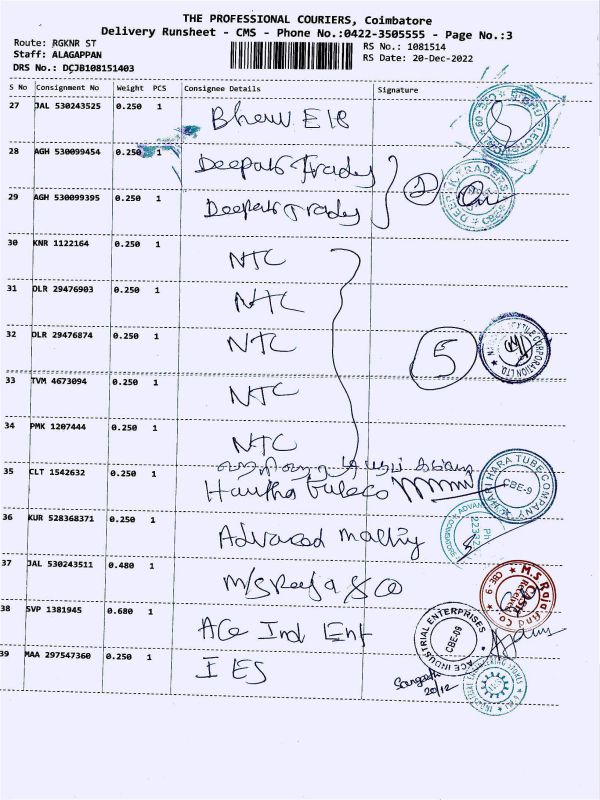 THE PROFESSIONAL COURIERS, Coimbatore
Delivery Runsheet - CMS - Phone No.:0422-3505555 - Page No.:3
Route: RGKNR ST
RS No.: 1081514
Staff: ALAGAPPAN
RS Date: 20-Dec-2022
DRS No.: DCJB108151403
S No Consignment No Weight PCS Consignee Details Signature
27 JAL 530243525 0.250 1
28 AGH 530099454 0.250 1 Deepak Trades
29 AGH 530099395 0.250 1 Deepak Trades
2
30 KNR 1122164 NTC
31 DLR 29476903 0.250 1 NTC
32 DLR 29476874 0.250 1 NTC
5
33 TVM 4673094 0.250 1 NTC
34 PMK 1207444 0.250 1 NTC
35 CLT 1542632 0.250 1
HARI HARA TUBE COMPANY CBE-9
36 KUR 528368371 0.250 1 Advanced
37 JAL 530243511 0.480 1 M/S Raja & Co
M.S Raja And Co CBE-9
38 SVP 1381945 0.680 1 Ace Ind Ent
ACE INDUSTRIAL ENTERPRISES CBE-09
39 MAA 297547360 0.250 1 IES
20/12